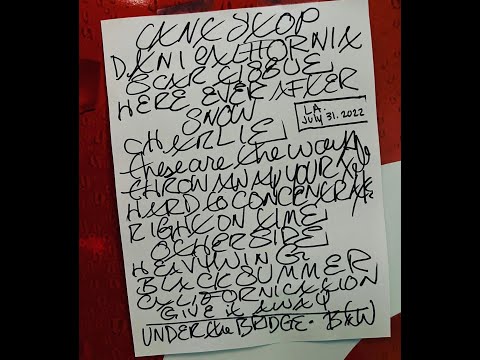 CANT STOP
DANI CALIFORNIA
SCAR TISSUE
HERE EVER AFTER
SNOW
L.A.
July 31. 2022
CHARLIE
these are the ways
THROW AWAY YOUR TV
HARD TO CONCENTRATE
RIGHT ON TIME
OTHERSIDE
HEAVY WING
BLACK SUMMER
CALIFORNICATION
GIVE it AWAY
UNDER the BRIDGE -